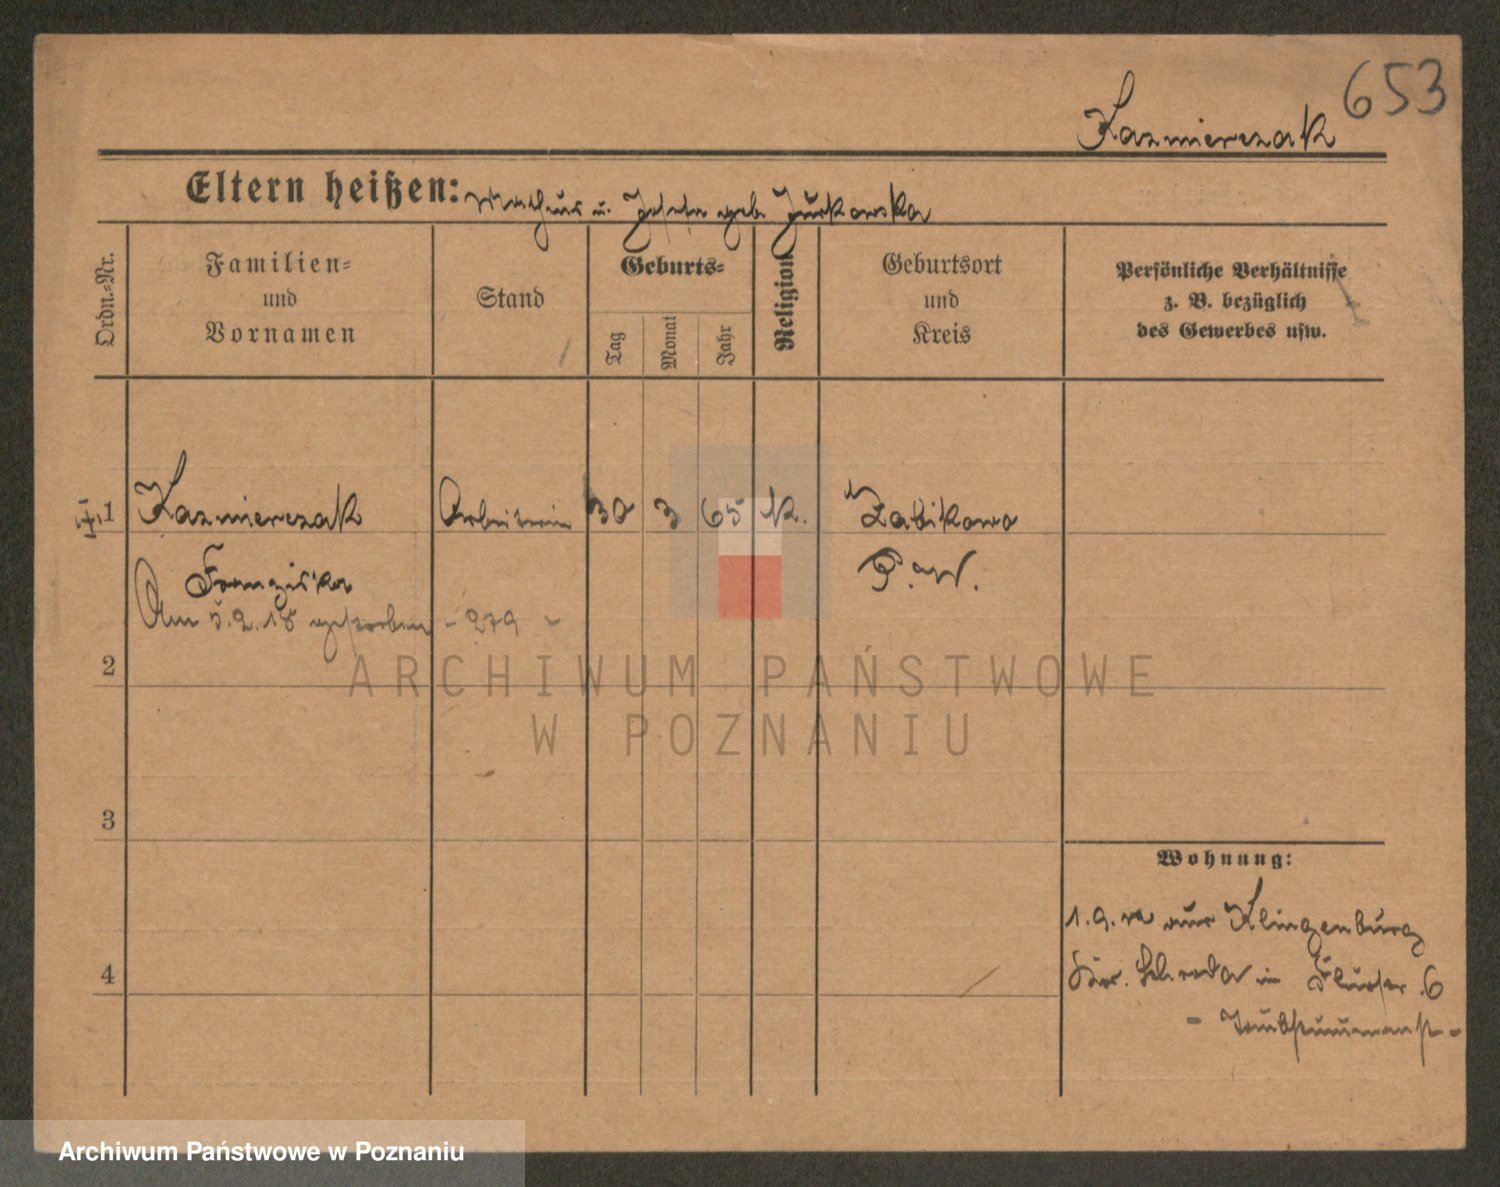 653
Kazmierczak
Eltern heißen: Mathäus u. Josefa geb. Jurkowska
Ordn.-Nr.
Familien-
und
Vornamen
Stand
Geburts-
Tag
Monat
Jahr
Religion
Geburtsort
und
Kreis
Persönliche Verhältnisse
z. B. bezüglich
des Gewerbes usw.
1 Kazmierczak Arbeiterin 30 3 65 K. Zabikowo
Franziska P. W.
Am 5.2.18 gestorben - 279 -
2
3
4
Wohnung:
1.9. aus Klingenburg
Kr. Schroda in Flurstr. 6
- Taubstummanst -
ARCHIWUM PAŃSTWOWE
W POZNANIU
Archiwum Państwowe w Poznaniu